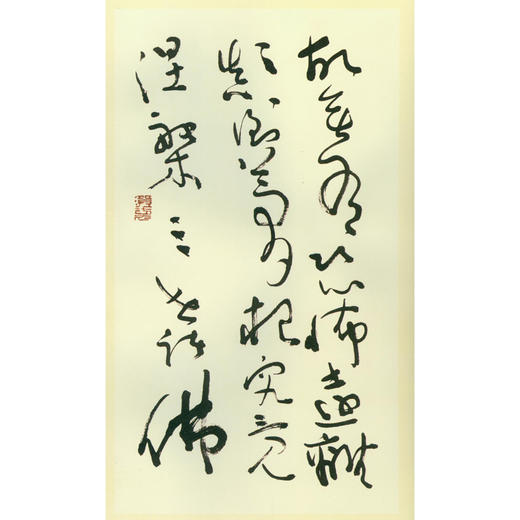 故無有恐怖遠離
顛倒夢想究竟
涅槃三世諸佛